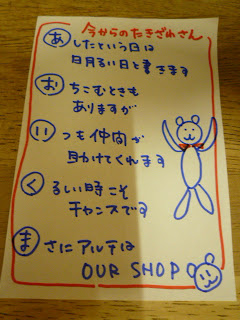 今からのたきざわさん
あしたという日は
日月るい日と書きます
おちこむときも
ありますが
いつも仲間が
助けてくれます
くるしい時こそ
チャンスです
まさにアルテは
OUR SHOP